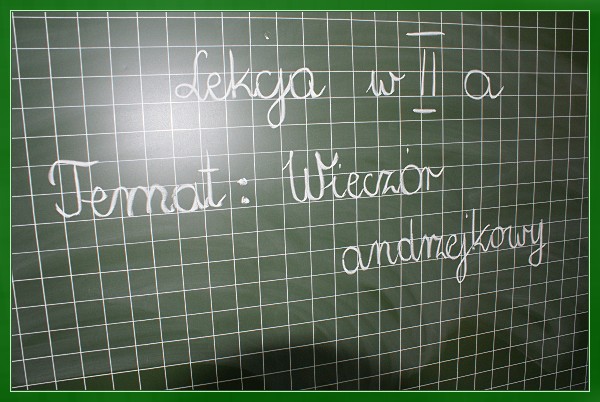 Lekcja w II a
Temat: Wieczór
andrzejkowy